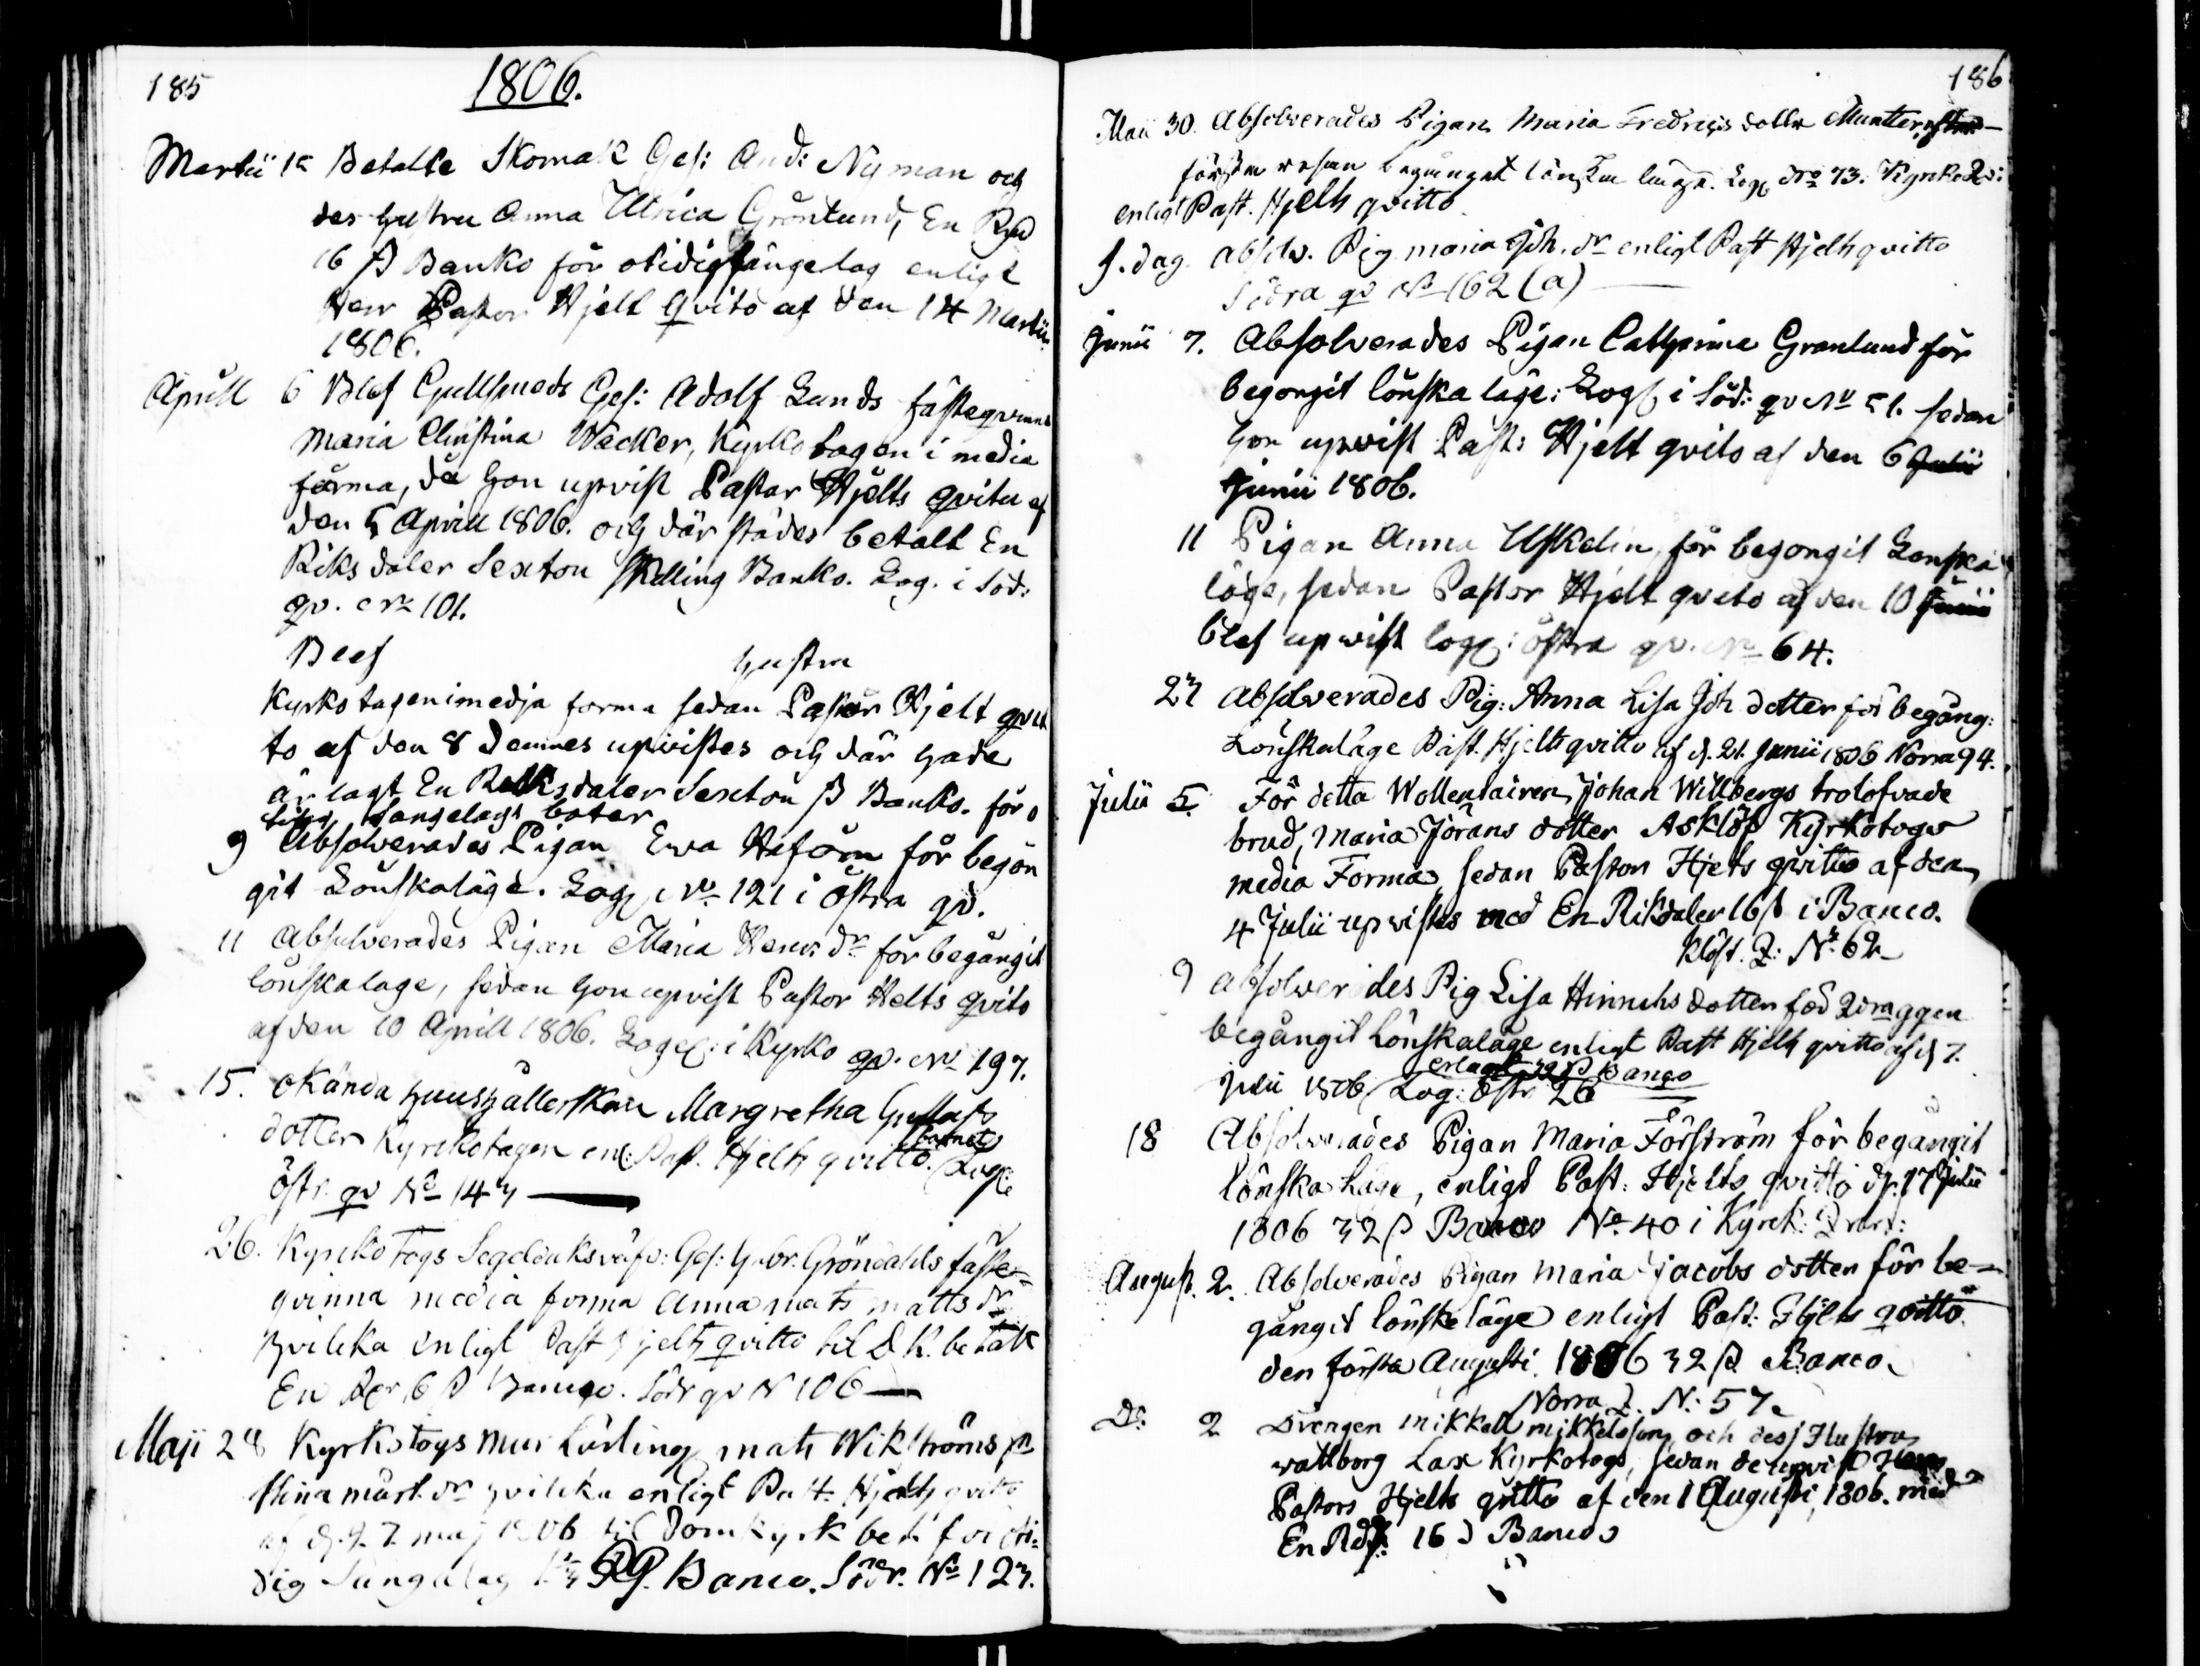 185
1806.
Martii 15 Betalte Skomak Ges: And: Nyman och
des hustru Anna Ulrica Grönlund, En Rxd
16 β Banko för otidig sängelag enligt
Herr Pastor Hjelt qvito af den 14 Martii
1806.
Aprill 6 Blef Gullsmeds Ges: Adolf Lunds fästeqvinna
Maria Christina Wacker, Kyrkotagen i media
forma, då hon upvist Pastor Hjelts qvitu af
den 5 Aprill 1806. och där städes betalt En
Riksdaler Sexton Skilling Banko. Log. i Söd:
qv. No 101.
Blef hustru
Kyrkotagen i medja forma sedan Pastor Hjelt qvit
to af den 8 Dennes upvistes och där hade
ärlagt En Riksdaler Sexton β Banko. för o
tidig Sängelags böter
9 Absolverades Pigan Ewa Haförn för begån
git Lönskaläge. Log No 121 i östra qv.
11 Absolverades Pigan Maria Henr: dr för begångit
lönskaläge, sedan hon upvist Pastor Helts qvito
af den 10 Aprill 1806. Loge: i Kyrko qv. No 197.
15. Okända hushållerskan Margretha Gustafs
dotter Kyrkotagen enl: Past. Hjelts qvitto. Log:
barnet
östr. qv No 143
26. Kyrckotogs Segelduksväfv: Ges: Gabr: Gröndahls fäste-
qvinna media forma Anna mats matts dr
hvilcka enligt Past Hjelts qvitto til D. K. betalt
En Rdr, 6 β Banco. Södr qv N 106
Maji 28 Kyrkotogs Mur Lärling mats Wikströms
Stina mårt. dr hvilcka enligt Past. Hjelts qvitto
af d. 27 maj 1806 til Domkyrk bet. för oti-
dig Sängelag Banco. Södr. No 123.
186
Maii 30. Absolverades Pigan Maria Fredrics dotter Munster
första resan begånget lönska läge. Log No 73. Kyrko
enligt Past. Hjelts qvitto
s. dag. absolv. Pig. maria Joh. dr enligt Past Hjelts qvitto
Södra qv No 162 (a)
Junii 7. Absolverades Pigan Catharina Granlund för
begongit lönska läge: Log i Söd: qv No 51. sedan
hon upvist Past: Hjelt qvito af den 6 Julii
Junii 1806.
11 Pigan Anna Uskelin, för begongit Lönska
läge, sedan Pastor Hjelt qvito af den 10 Junii
blef upvist log: östra qv. No 64.
23 Absolverades Pig: Anna Lisa Joh dotter för begång:
Lönskaläge Past. Hjelts qvitto af d. 21. Junii 1806 Norra 94.
Julii 5. För detta Wollentairen Johan Willbergs trolofvade
brud, Maria Jörans dotter Asklöf Kyrkotogs
media Forma, sedan Pastor Hjelts qvitto af den
4 Julii upvistes med En Riksdaler 16 β i Banco.
Klöst. Q: No 62
9 Absolverades Pig Lisa Hinrichs dotter
begångit Lönskaläge enligt Past Hjelts qvitto af d 7.
erlagt 32 β Banco
Julii 1806 Log: östr 26
18 Absolverades Pigan Maria Förström för begångit
lönska Läge, enligt Past: Hjelts qvitto d. 17 Julii
1806 32 β Banco No 40 i Kyrck: Qvart:
August. 2. Absolverades Pigan Maria Jacobs dotter för be-
gångit lönskeläge enligt Past: Hjelts qvitto
den första Augusti. 1806 32 β Banco
Norra Q. N: 57.
Do: 2 Drengen Mikkel mikkelsson, och dess Hustru
wallborg Lax Kyrkotogs, sedan de upvist Herr
Pastors Hjelts qvitto af den 1 Augusti, 1806. med
En Rdr: 16 β Banco